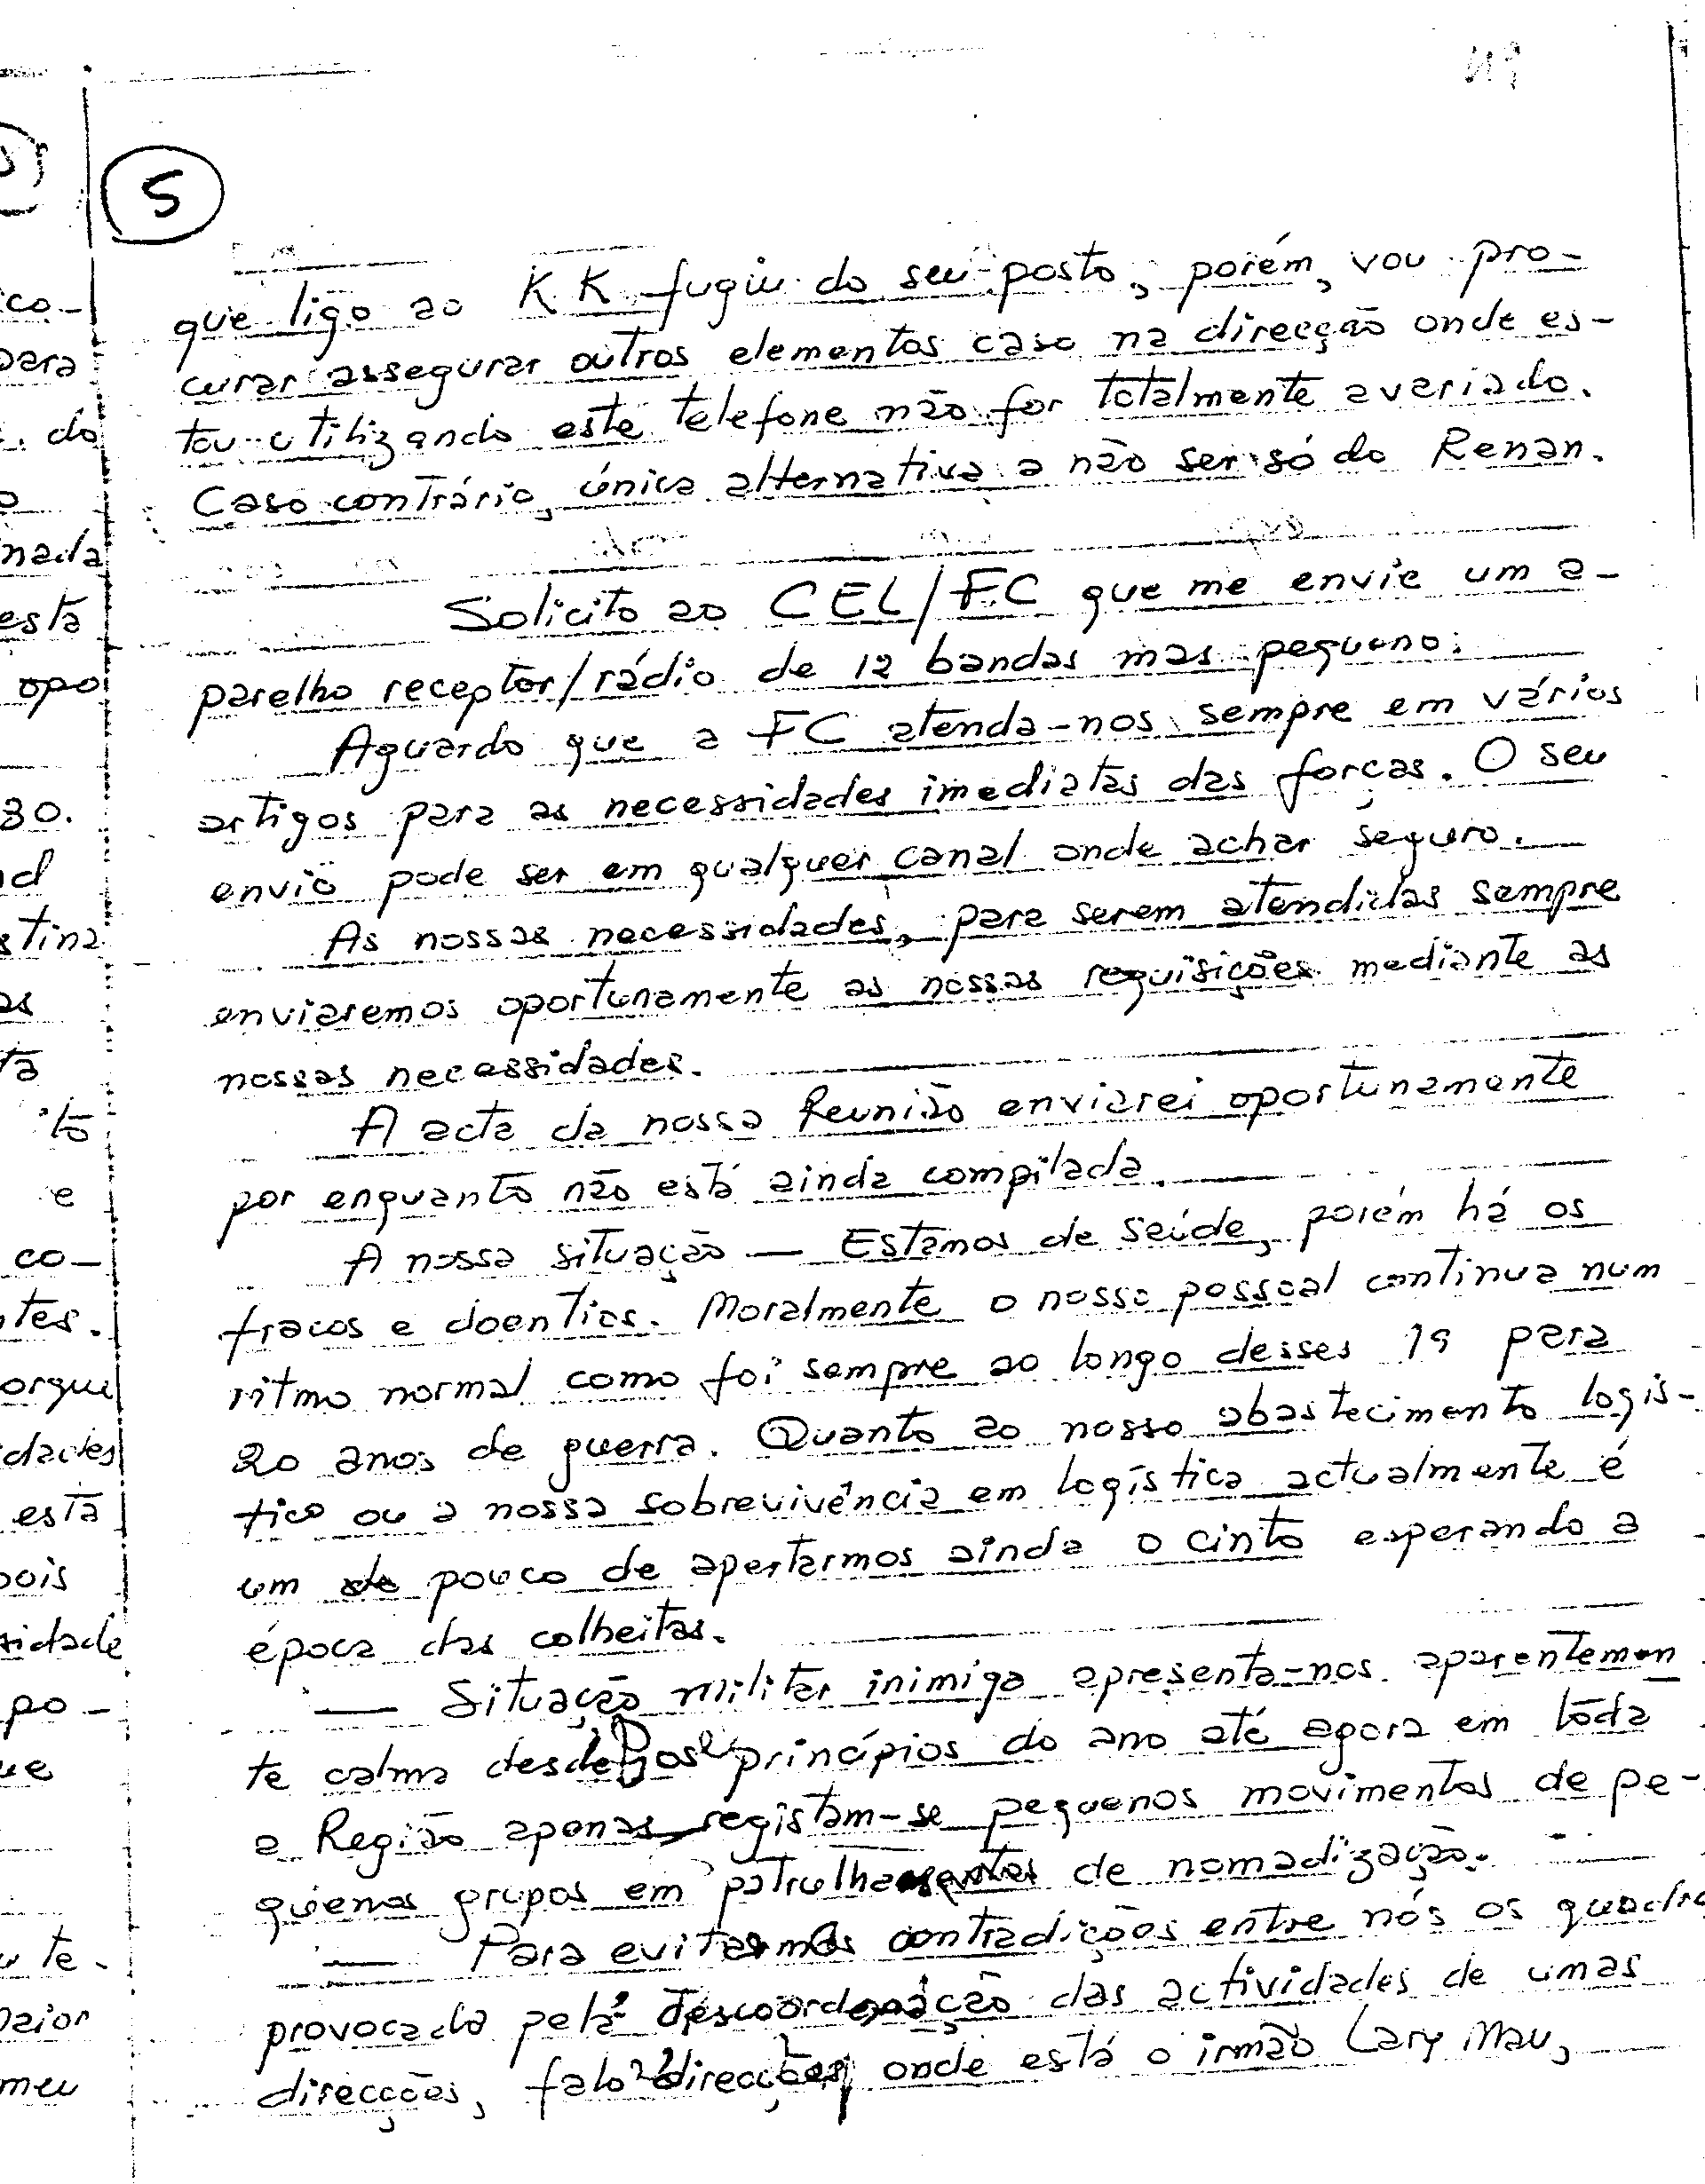 5
que ligo ao KK fugiu do seu posto, porém, vou pro-
curar assegurar outros elementos caso na direcção onde es-
tou utilizando este telefone não for totalmente avariado.
Caso contrário, única alternativa a não ser só do Renan.
Solicito ao CEL/FC que me envie um a-
parelho receptor/rádio de 12 bandas mas pequeno.
Aguardo que a FC atenda-nos sempre em vários
artigos para as necessidades imediatas das forças. O seu
envio pode ser em qualquer canal onde achar seguro.
As nossas necessidades, para serem atendidas sempre
enviaremos oportunamente as nossas requisições mediante as
nossas necessidades.
A acta da nossa Reunião enviarei oportunamente
por enquanto não está ainda compilada.
A nossa situação — Estamos de saúde, porém há os
fracos e doentios. Moralmente o nosso pessoal continua num
ritmo normal como foi sempre ao longo desses 19 para
20 anos de guerra. Quanto ao nosso abastecimento logis-
tico ou a nossa sobrevivência em logística actualmente é
um de pouco de apertarmos ainda o cinto esperando a
época das colheitas.
— Situação militar inimiga apresenta-nos aparentemen
te calma desde os princípios do ano até agora em toda
a Região apenas registam-se pequenos movimentos de pe-
quenos grupos em de nomadização.
— Para evitarmos contradições entre nós os quadro
provocada pela descoordenação das actividades de umas
direcções, falo direcções onde está o irmão Lary Mau,
co-
para
do
nada
esta
opo
80.
d
stina
as
ta
to
e
co-
ntes.
orque
dades
está
pois
sidade
po-
ue
te-
maior
meu